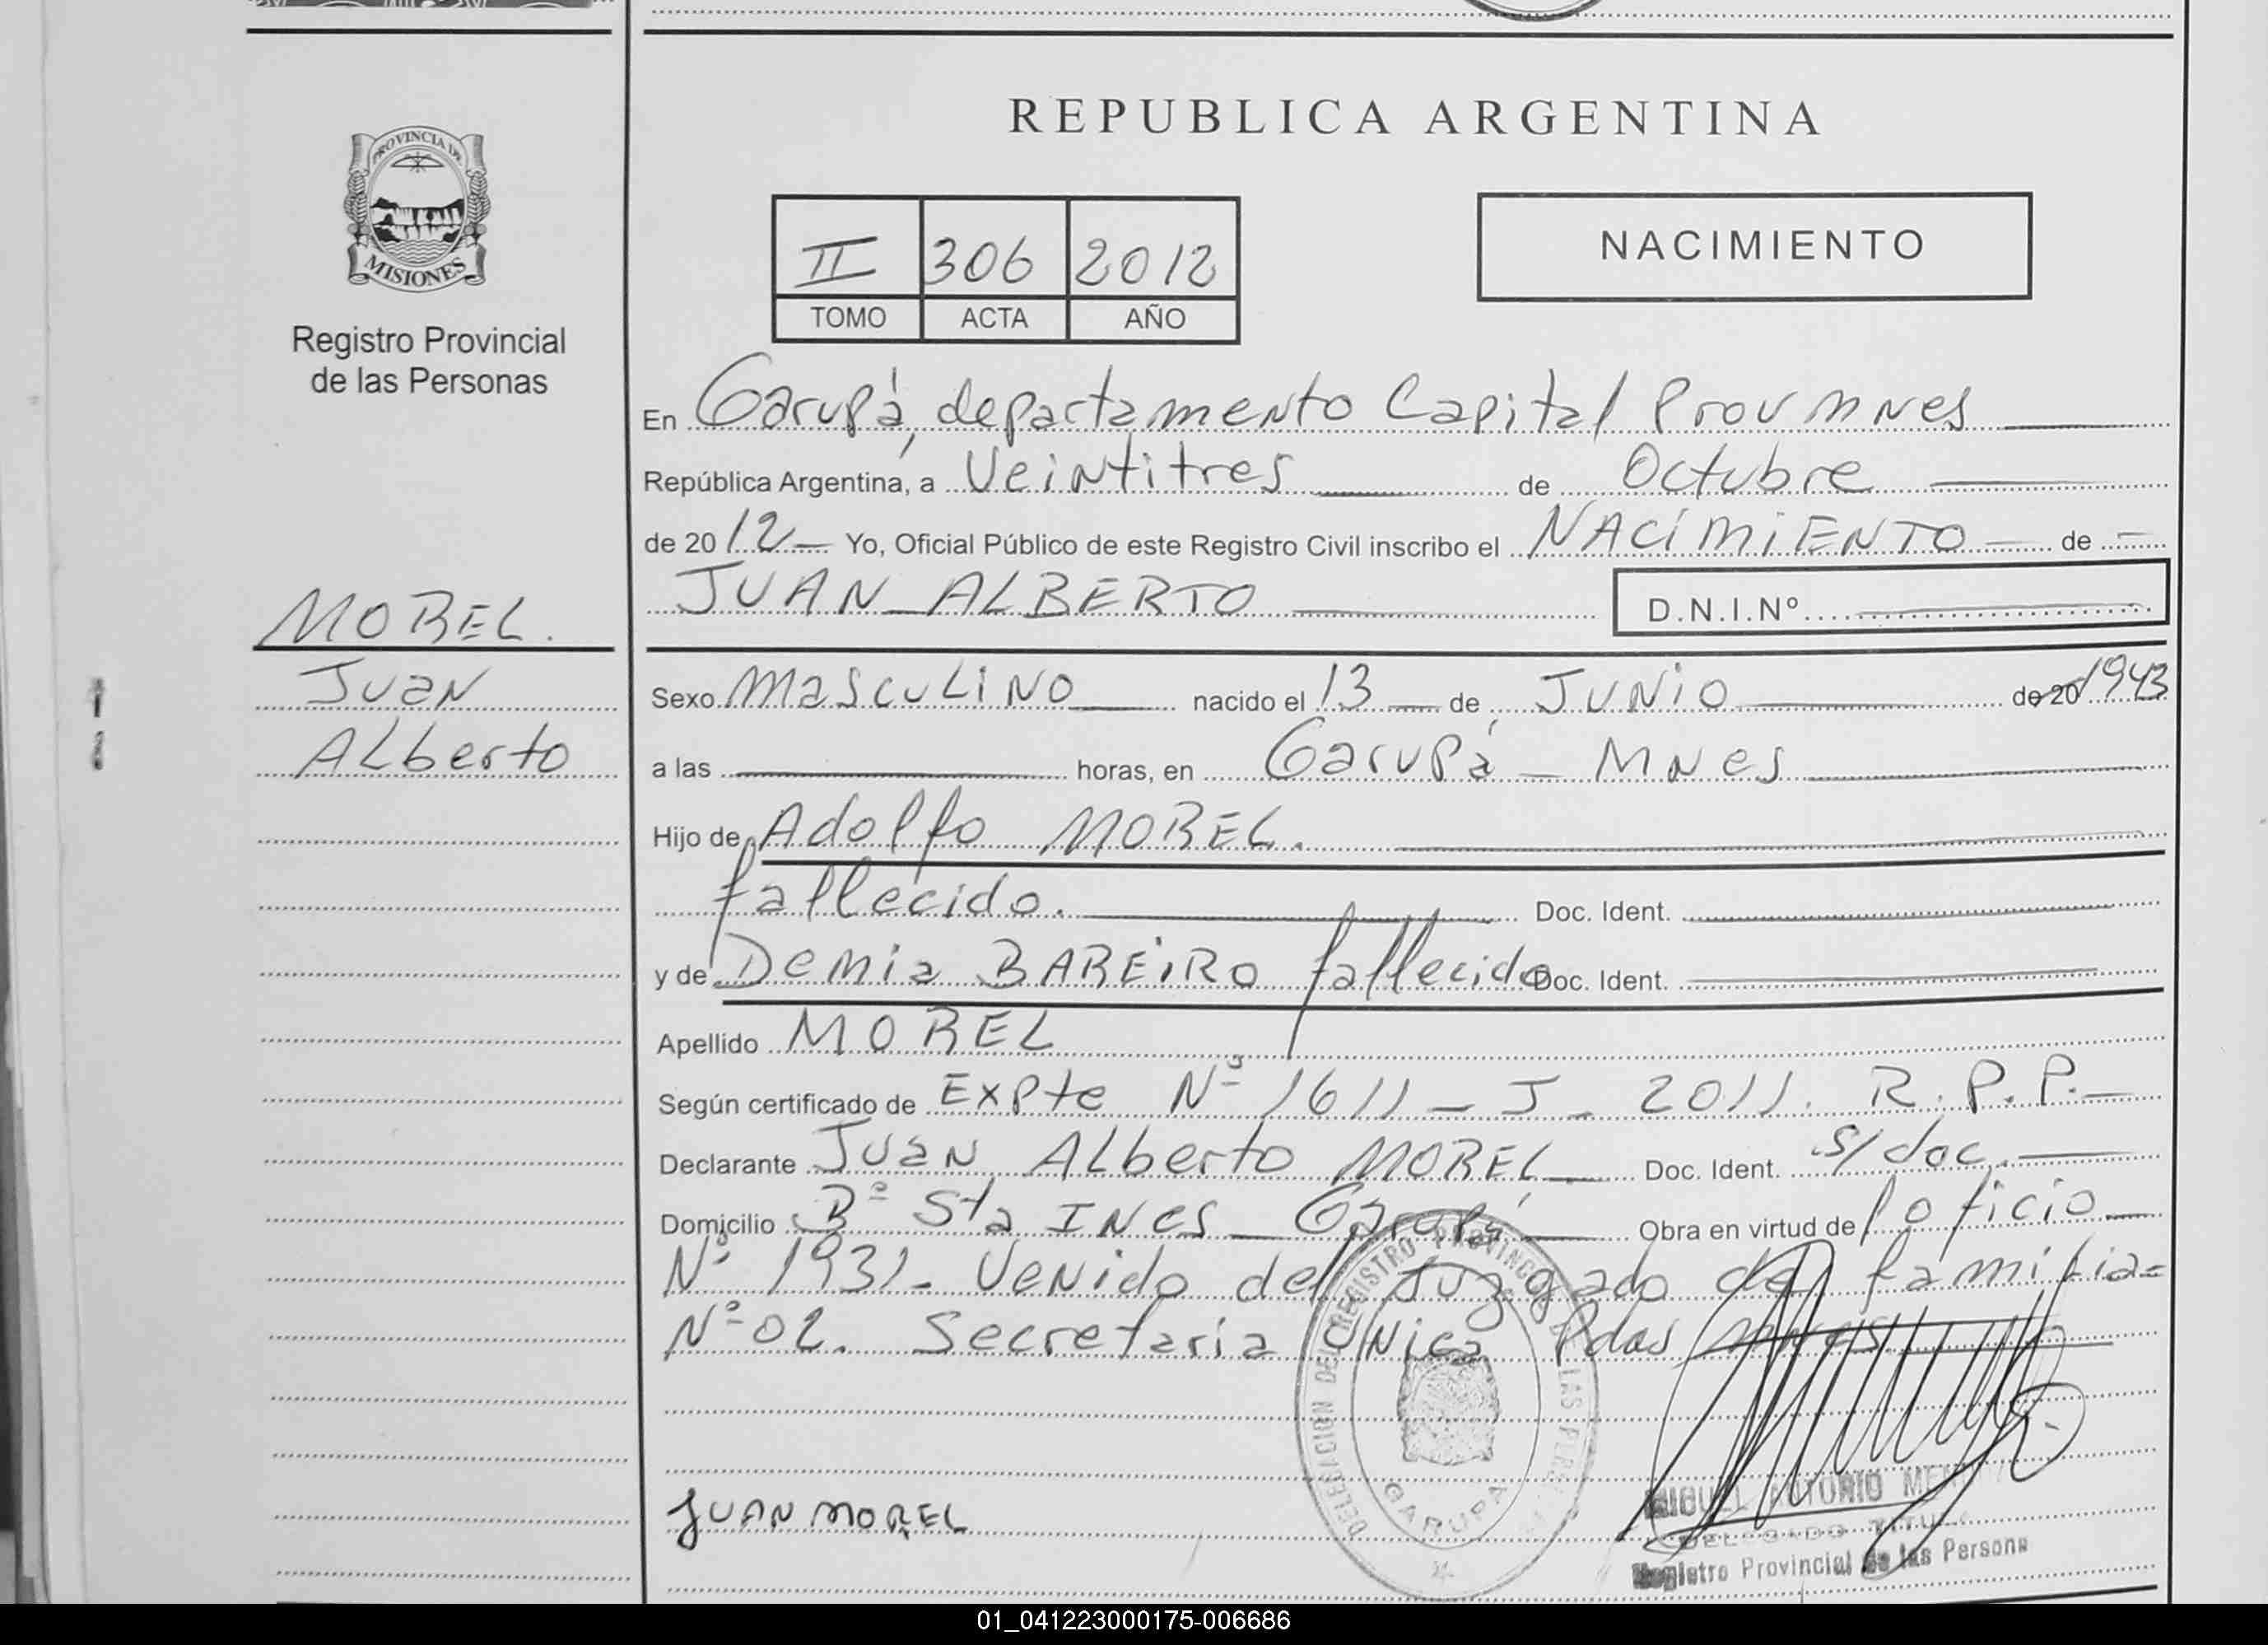 REPUBLICA ARGENTINA
PROVINCIA DE
MISIONES
Registro Provincial
de las Personas
II 306 2012
TOMO ACTA AÑO
NACIMIENTO
En Garupá, departamento Capital Prov Mnes
República Argentina, a Veintitres de Octubre
de 2012 Yo, Oficial Público de este Registro Civil inscribo el NACIMIENTO de
JUAN ALBERTO D.N.I.Nº
MOREL.
Juan
Alberto
Sexo Masculino nacido el 13 de JUNIO de 20 1943
a las horas, en Garupá - Mnes
Hijo de Adolfo MOREL.
fallecido. Doc. Ident.
y de Demia BAREIRO fallecido Doc. Ident.
Apellido MOREL
Según certificado de Expte Nº 1611 - J - 2011. R.P.P.-
Declarante Juan Alberto MOREL Doc. Ident. s/doc.
Domicilio Bº Sta INes - Garupá Obra en virtud de oficio
Nº 1931- Venido del Juzgado de familia
Nº 02. Secretaria Unica Pdas Mnes
DELEGACION DEL REGISTRO PROVINCIAL DE LAS PERSONAS
GARUPA
JUAN MOREL
MIGUEL ANTONIO
DELEGADO TITULAR
Registro Provincial de las Persona
01_041223000175-006686